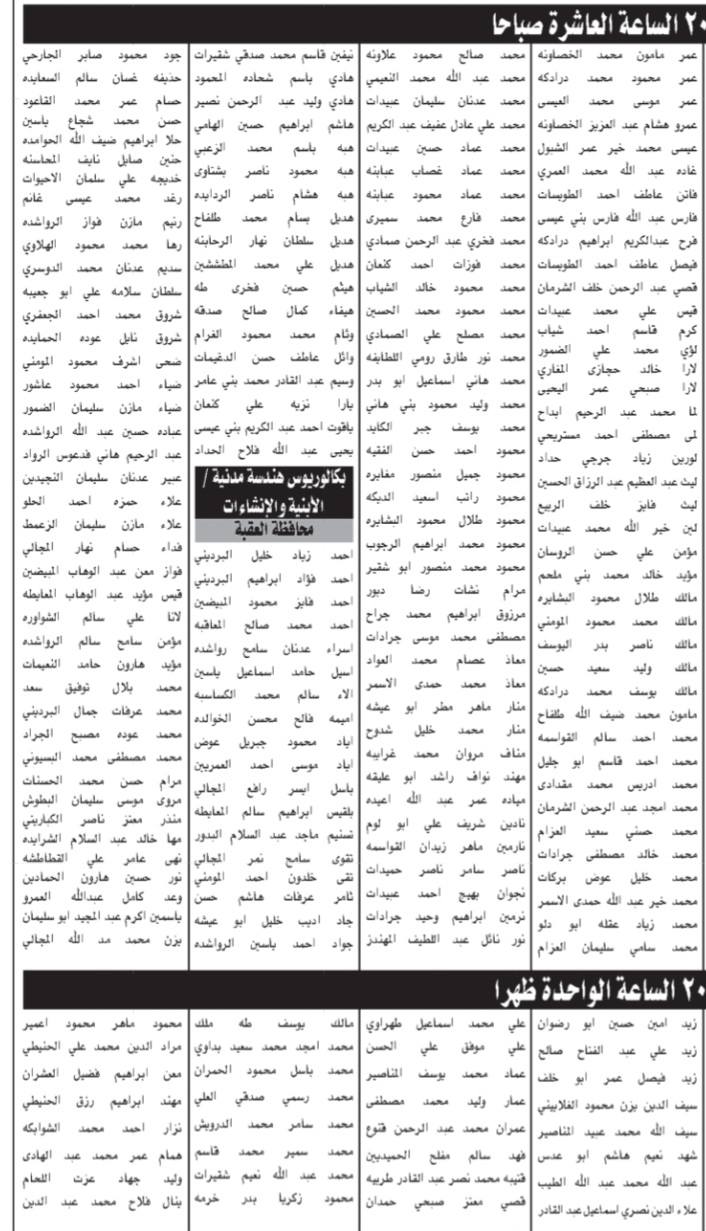 ٢٠ الساعة العاشرة صباحا
عمر مامون محمد الخصاونه
عمر محمود محمد درادكه
عمر موسى محمد العيسى
عمرو هشام عبد العزيز الخصاونه
عيسى محمد خير عمر الشبول
غاده عبد الله محمد العمري
فاتن عاطف احمد الطويسات
فارس عبد الله فارس بني عيسى
فرح عبدالكريم ابراهيم درادكه
فيصل عاطف احمد الطويسات
قصي عبد الرحمن خلف الشرمان
قيس علي محمد عبيدات
كرم قاسم احمد شياب
لؤي محمد علي الضمور
لارا خالد حجازى المغاري
لارا صبحي عمر اليحيى
لما محمد عبد الرحيم ابداح
لمى مصطفى احمد مستريحي
لورين زياد جرجي حداد
ليث عبد العظيم عبد الرزاق الحسين
ليث فايز خلف الربيع
لين خير الله محمد عبيدات
مؤمن علي حسن الروسان
مؤيد خالد محمد بني ملحم
مالك طلال محمود البشايره
مالك محمد محمود المومني
مالك ناصر بدر اليوسف
مالك وليد سعيد حسين
مالك يوسف محمد درادكه
مامون محمد ضيف الله طلفاح
محمد احمد سالم القواسمه
محمد احمد قاسم ابو جليل
محمد ادريس محمد مقدادى
محمد امجد عبد الرحمن الشرمان
محمد حسني سعيد العزام
محمد خالد مصطفى جرادات
محمد خليل عوض بركات
محمد خير عبد الله حمدى الاسمر
محمد زياد عقله ابو دلو
محمد سامي سليمان العزام
محمد صالح محمود علاونه
محمد عبد الله محمد النعيمي
محمد عدنان سليمان عبيدات
محمد علي عادل عفيف عبد الكريم
محمد عماد حسين عبيدات
محمد عماد غصاب عبابنه
محمد عماد محمود عبابنه
محمد فارع محمد سميرى
محمد فخري عبد الرحمن صمادي
محمد فوزات احمد كنعان
محمد محمود خالد الشياب
محمد محمود محمد الحسين
محمد مصلح علي الصمادي
محمد نور طارق رومي اللطايفه
محمد هاني اسماعيل ابو بدر
محمد وليد محمود بني هاني
محمد يوسف جبر الكايد
محمود احمد حسن الفقيه
محمود جميل منصور مغايره
محمود راتب اسعيد الديكه
محمود طلال محمود البشايره
محمود محمد ابراهيم الرجوب
محمود محمد منصور ابو شقير
مرام نشات رضا دبور
مرزوق ابراهيم محمد جراح
مصطفى محمد موسى جرادات
معاذ عصام محمد العواد
معاذ محمد حمدى الاسمر
منار ماهر مطر ابو عيشه
منار محمد خليل شدوح
مناف مروان محمد غرايبه
مهند نواف راشد ابو عليقه
مياده عمر عبد الله اعبده
نادين شريف علي ابو لوم
نارمين ماهر زيدان القواسمه
ناصر سامر ناصر حميدات
نجوان بهيج احمد عبيدات
نرمين ابراهيم وحيد جرادات
نور نائل عبد اللطيف المهندز
نيفين قاسم محمد صدقي شقيرات
هادي باسم شحاده المحمود
هادي وليد عبد الرحمن نصير
هاشم ابراهيم حسين الهامي
هبه باسم محمد الزعبي
هبه محمود ناصر بشتاوى
هبه هشام ناصر الردايده
هديل بسام محمد طلفاح
هديل سلطان نهار الرحابنه
هديل علي محمد المطششين
هيثم حسين فخرى طه
هيفاء كمال صالح صدقه
وئام محمد محمود الفرام
وائل عاطف حسن الدغيمات
وسيم عبد القادر محمد بني عامر
يارا نزيه علي كنعان
ياقوت احمد عبد الكريم بني عيسى
يحيى عبد الله فلاح الحداد
بكالوريوس هندسة مدنية /
الأبنية والإنشاءات
محافظة العقبة
احمد زياد خليل البرديني
احمد فؤاد ابراهيم البرديني
احمد فايز محمود المبيضين
احمد محمد صالح المعاقبه
اسراء عدنان سامح رواشده
اسيل حامد اسماعيل ياسين
الاء سالم محمد الكساسبه
اميمه فالح محسن الخوالده
اياد محمود جبريل عوض
اياد موسى احمد العمريين
باسل ايسر رافع المجالي
بلقيس ابراهيم سالم المعايطه
تسنيم ماجد عبد السلام البدور
تقوى سامح نمر المجالي
تقى خلدون احمد المومني
ثامر عرفات هاشم حسن
جاد اديب خليل ابو عيشه
جواد احمد ياسين الرواشده
جود محمود صابر الجارحي
حذيفه غسان سالم السعايده
حسام عمر محمد القاعود
حسن محمد شجاع ياسين
حلا ابراهيم ضيف الله الحوامده
حنين صايل نايف المحاسنه
خديجه علي سلمان الاحيوات
رغد محمد عيسى غانم
رنيم مازن فواز الرواشده
رها محمد محمود الهلاوي
سديم عدنان محمد الدوسري
سلطان سلامه علي ابو جعيبه
شروق محمد احمد الجعفري
شروق نايل عوده الحمايده
ضحى اشرف محمود المومني
ضياء احمد محمود عاشور
ضياء مازن سليمان الضمور
عباده حسين عبد الله الرواشده
عبد الرحيم هاني فدعوس الرواد
عبير عدنان سليمان النجيدين
علاء حمزه احمد الحلو
علاء مازن سليمان الزعمط
فداء حسام نهار المجالي
فواز معن عبد الوهاب المبيضين
قيس مؤيد عبد الوهاب المعايطه
لانا علي سالم الشواوره
مؤمن سامح سالم الرواشده
مؤيد هارون حامد النعيمات
محمد بلال توفيق سعد
محمد عرفات جمال البرديني
محمد عوده مصبح الجراد
محمد مصطفى محمد البسيوني
مرام حسن محمد الحسنات
مروى موسى سليمان البطوش
منذر معتز ناصر الكباريتي
مها خالد عبد السلام الشرايده
نهى عامر علي القطاطشه
نور حسين هارون الحمادين
وعد كامل عبدالله العمرو
ياسمين اكرم عبد المجيد ابو سليمان
يزن محمد مد الله المجالي
٢٠ الساعة الواحدة ظهرا
زيد امين حسين ابو رضوان
زيد علي عبد الفتاح صالح
زيد فيصل عمر ابو خلف
سيف الدين يزن محمود الغلاييني
سيف الله محمد عبيد المناصير
شهد نعيم هاشم ابو عدس
عبد الله محمد عبد الله الطيب
علاء الدين نصري اسماعيل عبد القادر
علي محمد اسماعيل طهراوي
علي موفق علي الحسن
عماد محمد يوسف المناصير
عمار وليد محمد مصطفى
عمران محمد عبد الرحمن قتوع
فهد سالم مفلح الحميديين
قتيبه محمد نصر عبد القادر طربيه
قصي معتز صبحي حمدان
مالك يوسف طه ملك
محمد امجد محمد سعيد بداوي
محمد باسل محمود الحمران
محمد رسمي صدقي العلي
محمد سامر محمد الدرويش
محمد سمير محمد قاسم
محمد عبد الله نعيم شقيرات
محمود زكريا بدر خرمه
محمود ماهر محمود اعمير
مراد الدين محمد علي الحنيطي
معن ابراهيم فضيل العشران
مهند ابراهيم رزق الحنيطي
نزار احمد محمد الشوابكه
همام عمر محمد عبد الهادى
وليد جهاد عزت اللحام
ينال فلاح محمد عبد الدين